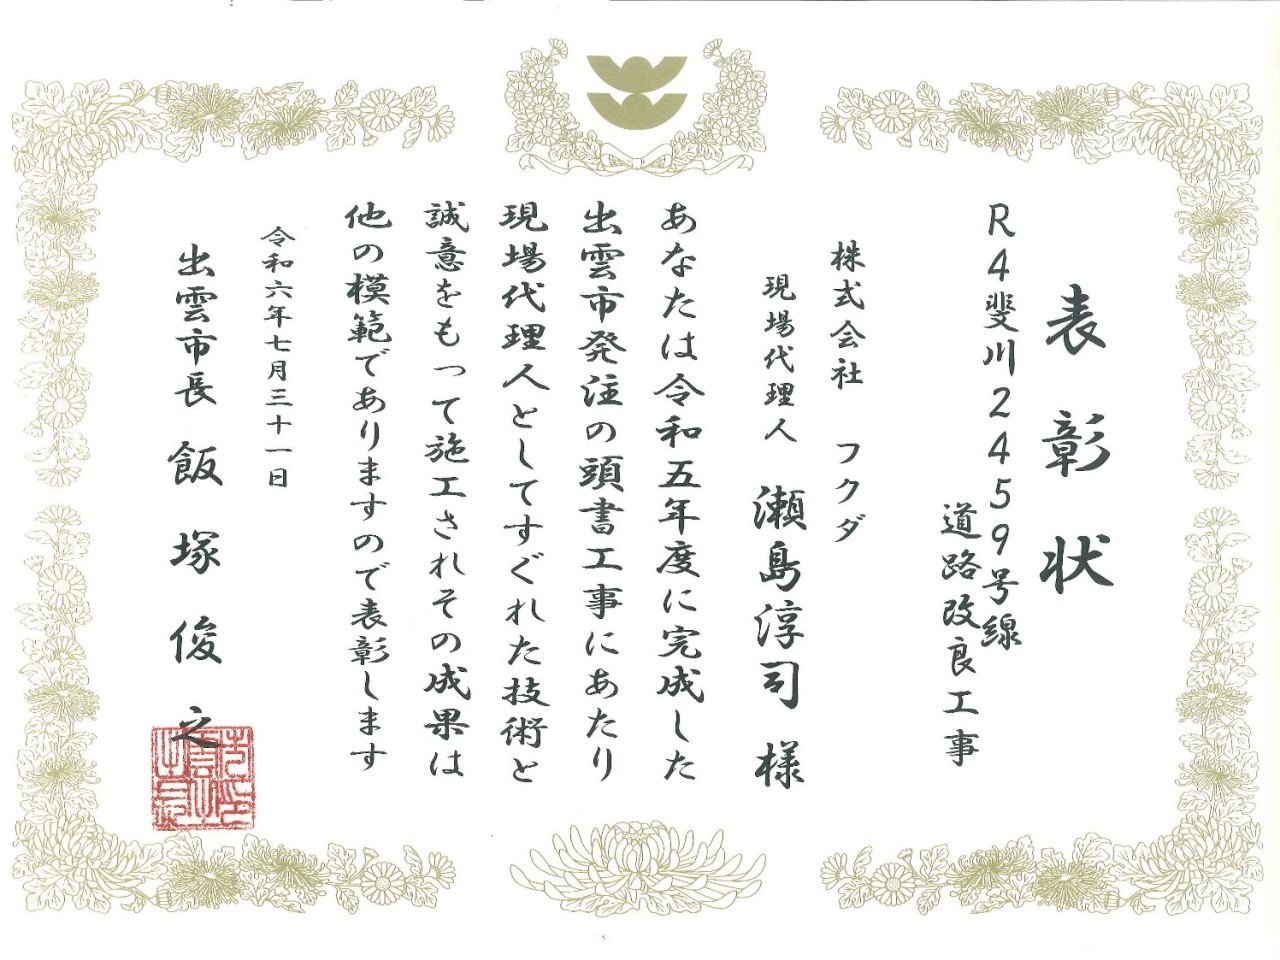 表彰状
R4斐川2459号線
道路改良工事
株式会社 フクダ
現場代理人 瀬島淳司 様
あなたは令和五年度に完成した
出雲市発注の頭書工事にあたり
現場代理人としてすぐれた技術と
誠意をもって施工されその成果は
他の模範でありますので表彰します
令和六年七月三十一日
出雲市長 飯塚俊之